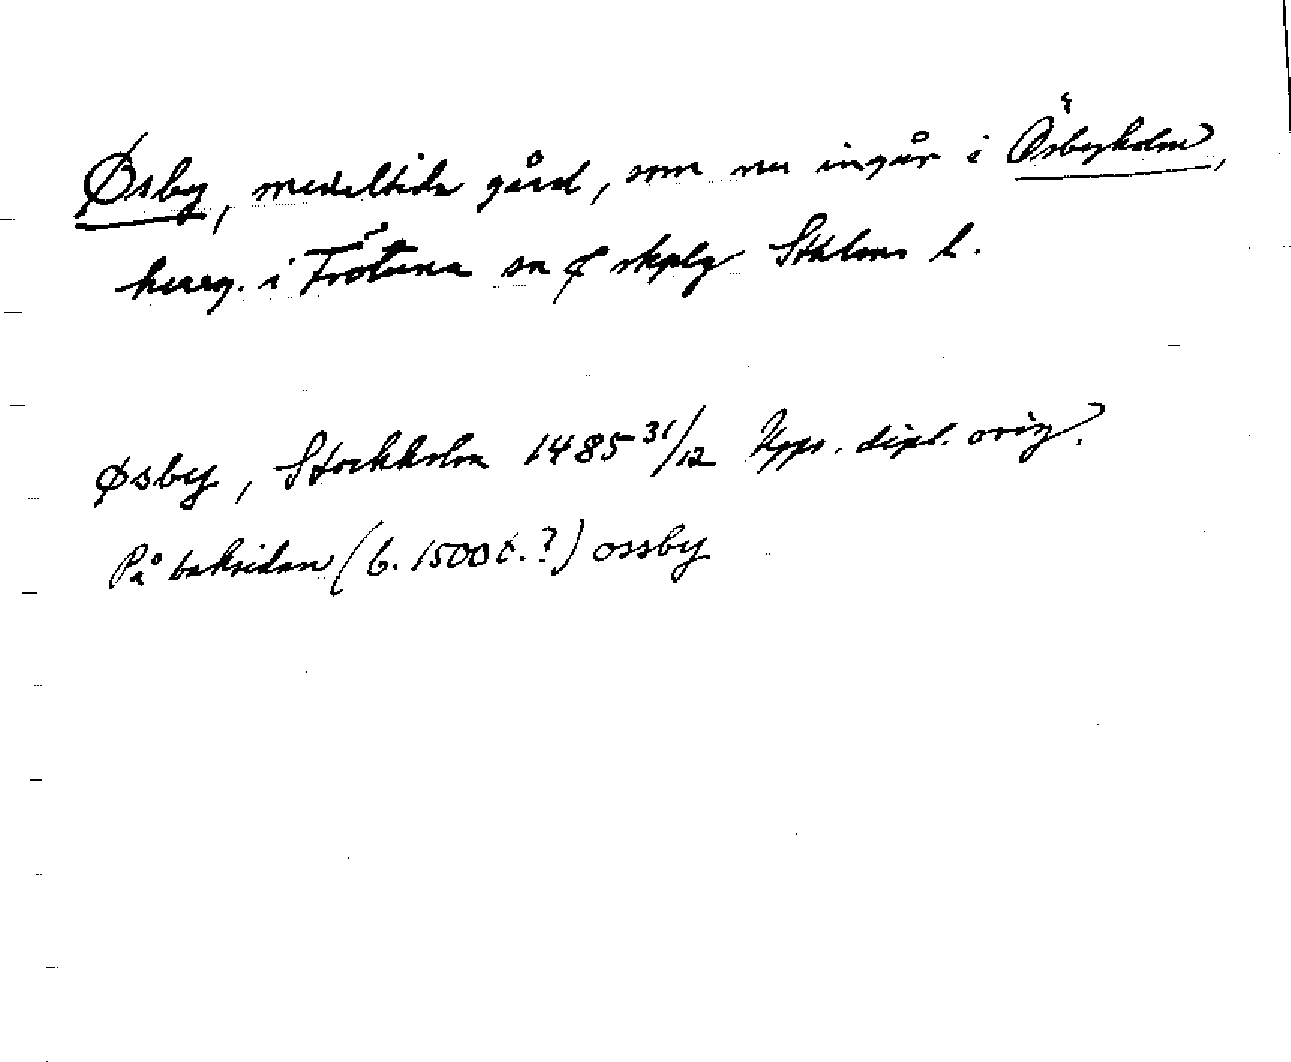 Øsby, medeltida gård, som nu ingår i Ösbyholm,
herrg. i Frötuna sn o skplg Sthlms l.
øsby, Stockholm 1485 31/12 Upps. dipl. orig.
På baksidan (b. 1500 t. ?) ossby